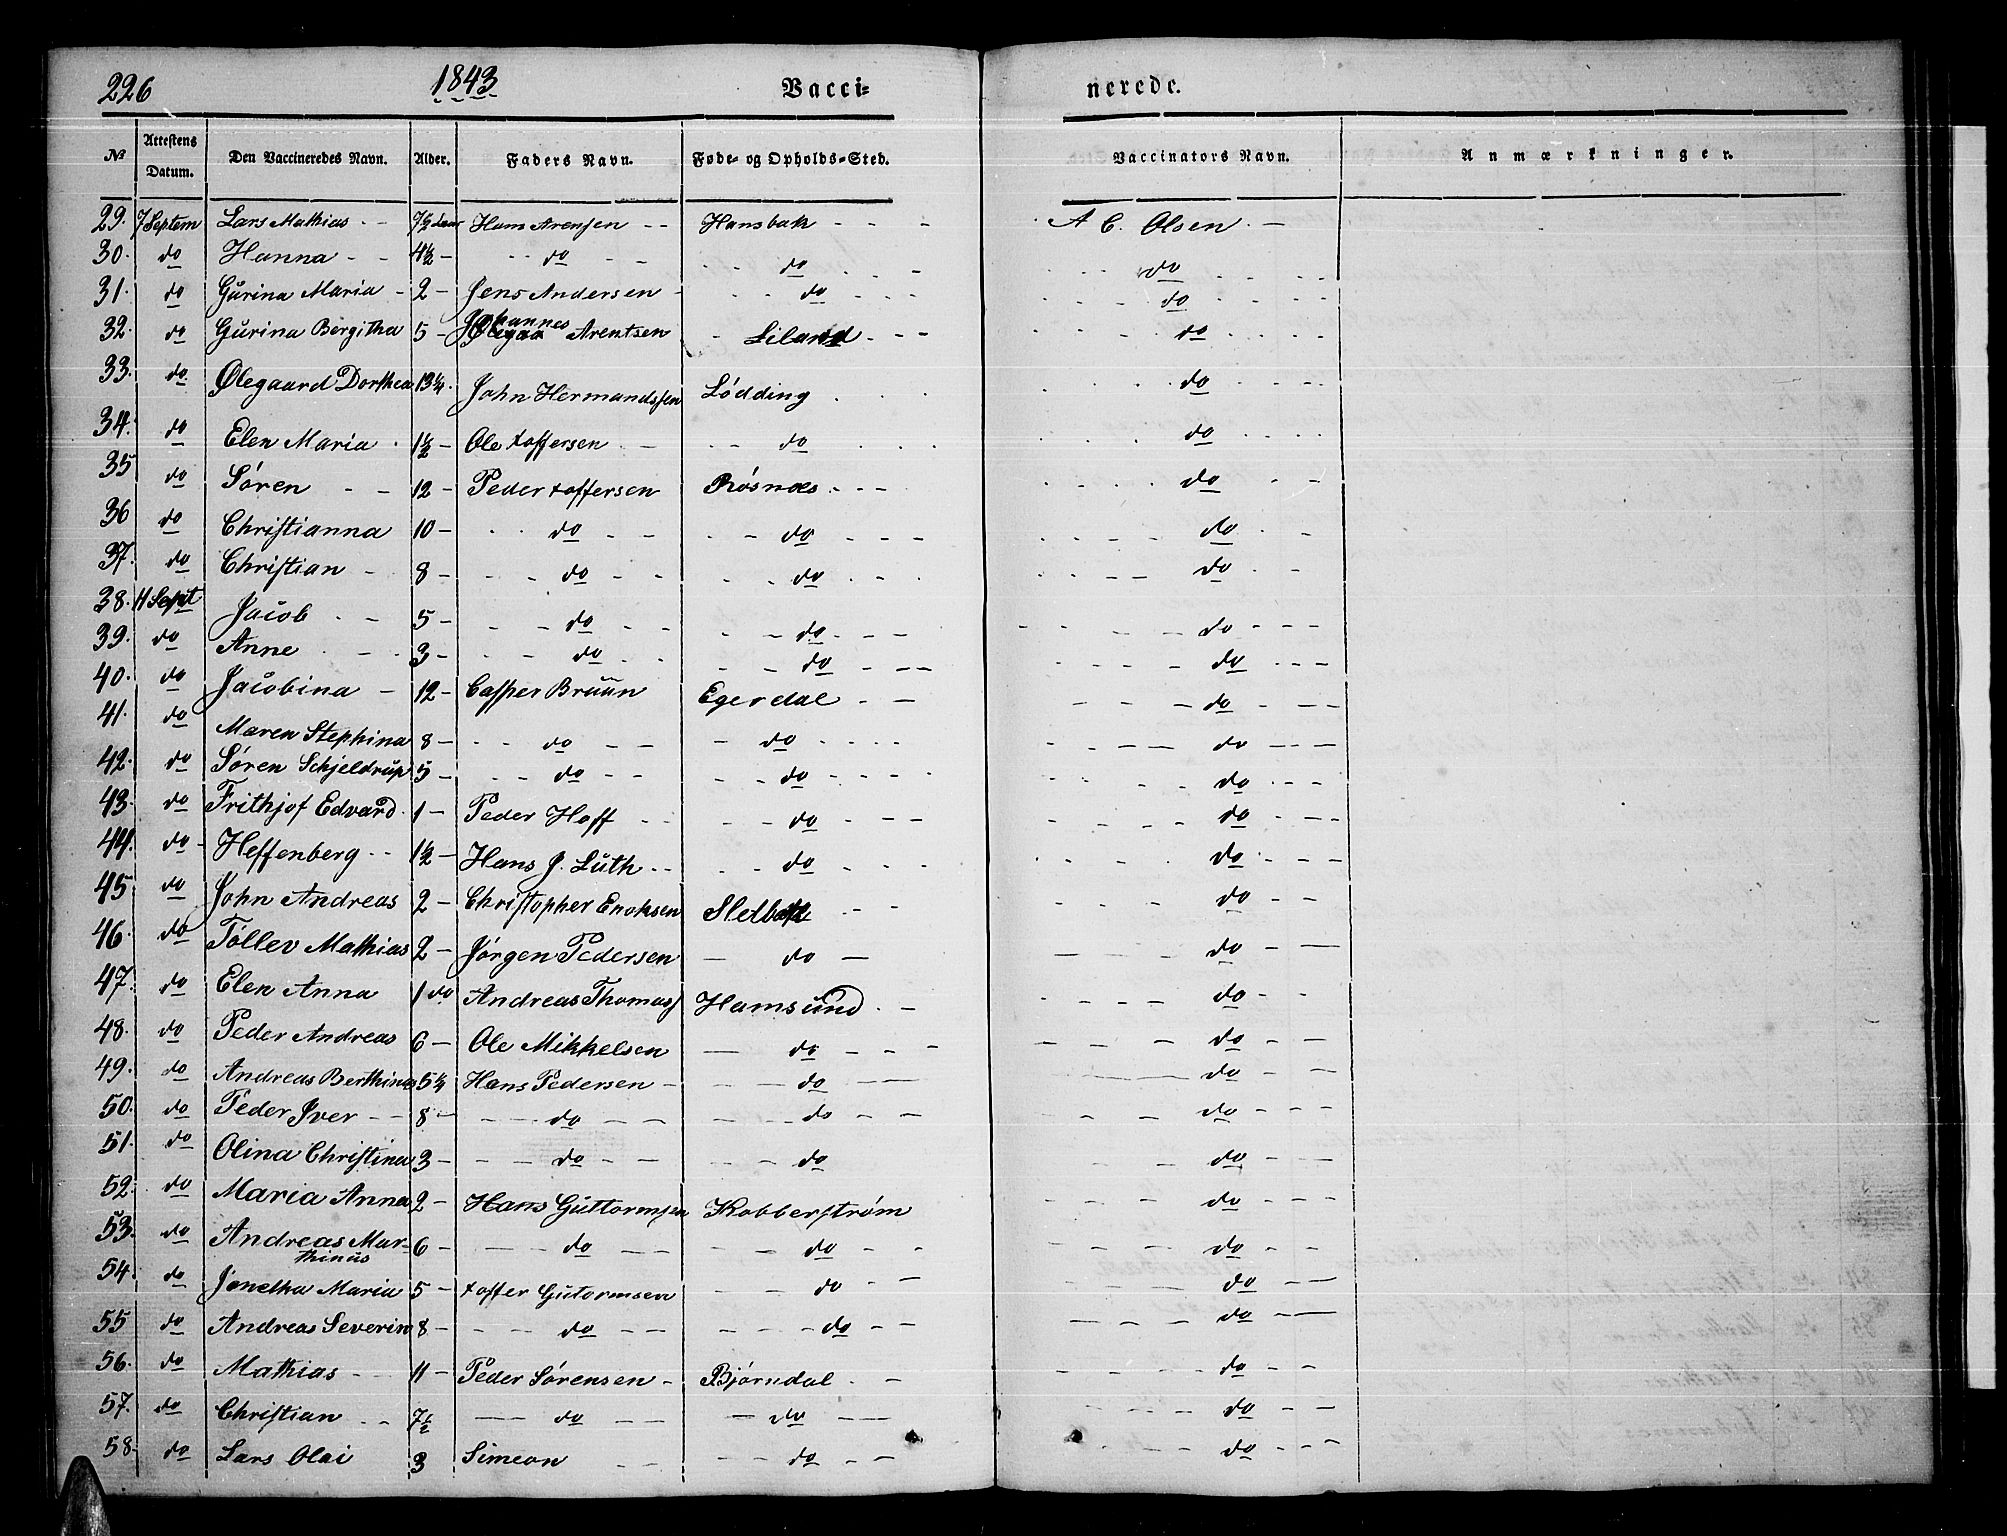 226 1843 Vacci- nerede.
№ Attestens Datum. Den Vaccineredes Navn. Alder. Faders Navn. Føde- og Opholds-Sted. Vaccinators Navn. Anmærkninger.
29. 7 Septem Lars Mathias - - 7½ Hans Arensen - - Hansbak - - - A C. Olsen. -
30. do Hanna - - 4½ - do do do
31. do Gurina Maria - 2 - Jens Andersen - do do
32. do Gurina Bergitha 5 - Johannes Arentsen - Liland - - - do
33. do Ølegaard Dorthea 13¼ John Hermandssen Lødding do
34. do Elen Maria 1½ - Ole xoffersen do do
35 do Søren - - 12 - Peder xoffersen Røsnæs - - - do
36 do Christianna 10 - do do do
37. do Christian - 8 - do do do
38. 11 Sept Jacob - - 5 - do do do
39. do Anne 3 - do do do
40. do Jacobina - 12 - Casper Bruun Egerdal - - do
41. do Maren Stephina 8 - do do do
42. do Søren Schjeldrup 5 - do do do
43. do Frithjof Edvard 1 - Peder Hoff - - do do
44. do Heffenberg - - 1½ - Hans J. Luth - - do do
45. do John Andreas 2 - Christopher Enoksen do
46. do Tøllev Mathias 2 - Jørgen Pedersen - do - do
47. do Elen Anna 1 do Andreas Thomass Hamsund - do
48. do Peder Andreas 6 - Ole Mikkelsen do do
49. do Andreas Berthinus 5¼ Hans Pedersen - do do
50. do Peder Iver - - 8 - do do do
51. do Olina Christina 3 - do do do
52. do Maria Anna 2 - Hans Guttormsen Kobberstrøm do
53. do Andreas Mar-
thinus 6 - do do do
54. do Jonetha Maria 5 - xoffer Gutormsen do do
55 do Andreas Severin 8 - do do do
56. do Mathias - - 11 - Peder Sørensen - Bjørndal - - do
57. do Christian - - 7½ do do do
58. do Lars Olai 3 Simeon do do